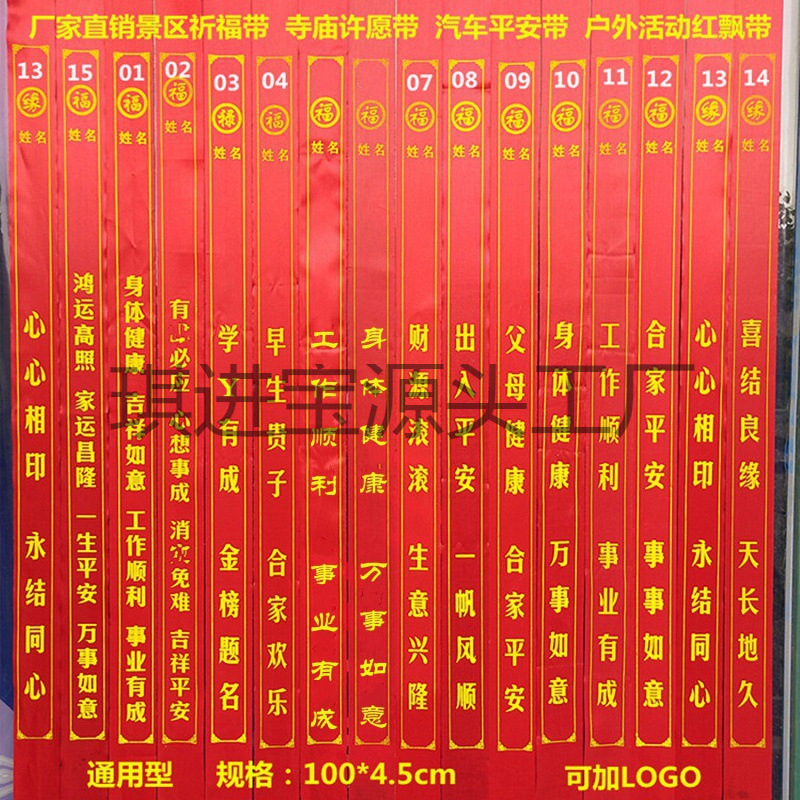 厂家直销景区祈福带 寺庙许愿带 汽车平安带 户外活动红飘带
13
缘
姓名
心心相印 永结同心
15
福
姓名
鸿运高照 家运昌隆 一生平安 万事如意
01
福
姓名
身体健康 吉祥如意 工作顺利 事业有成
02
福
姓名
有求必应 心想事成 消灾免难 吉祥平安
03
禄
姓名
学业有成 金榜题名
04
福
姓名
早生贵子 合家欢乐
福
姓名
工作顺利 事业有成
福
姓名
身体健康 万事如意
07
福
姓名
财源滚滚 生意兴隆
08
福
姓名
出入平安 一帆风顺
09
福
姓名
父母健康 合家平安
10
福
姓名
身体健康 万事如意
11
福
姓名
工作顺利 事业有成
12
福
姓名
合家平安 事事如意
13
缘
姓名
心心相印 永结同心
14
缘
姓名
喜结良缘 天长地久
琪进宝源头工厂
通用型 规格：100*4.5cm 可加LOGO